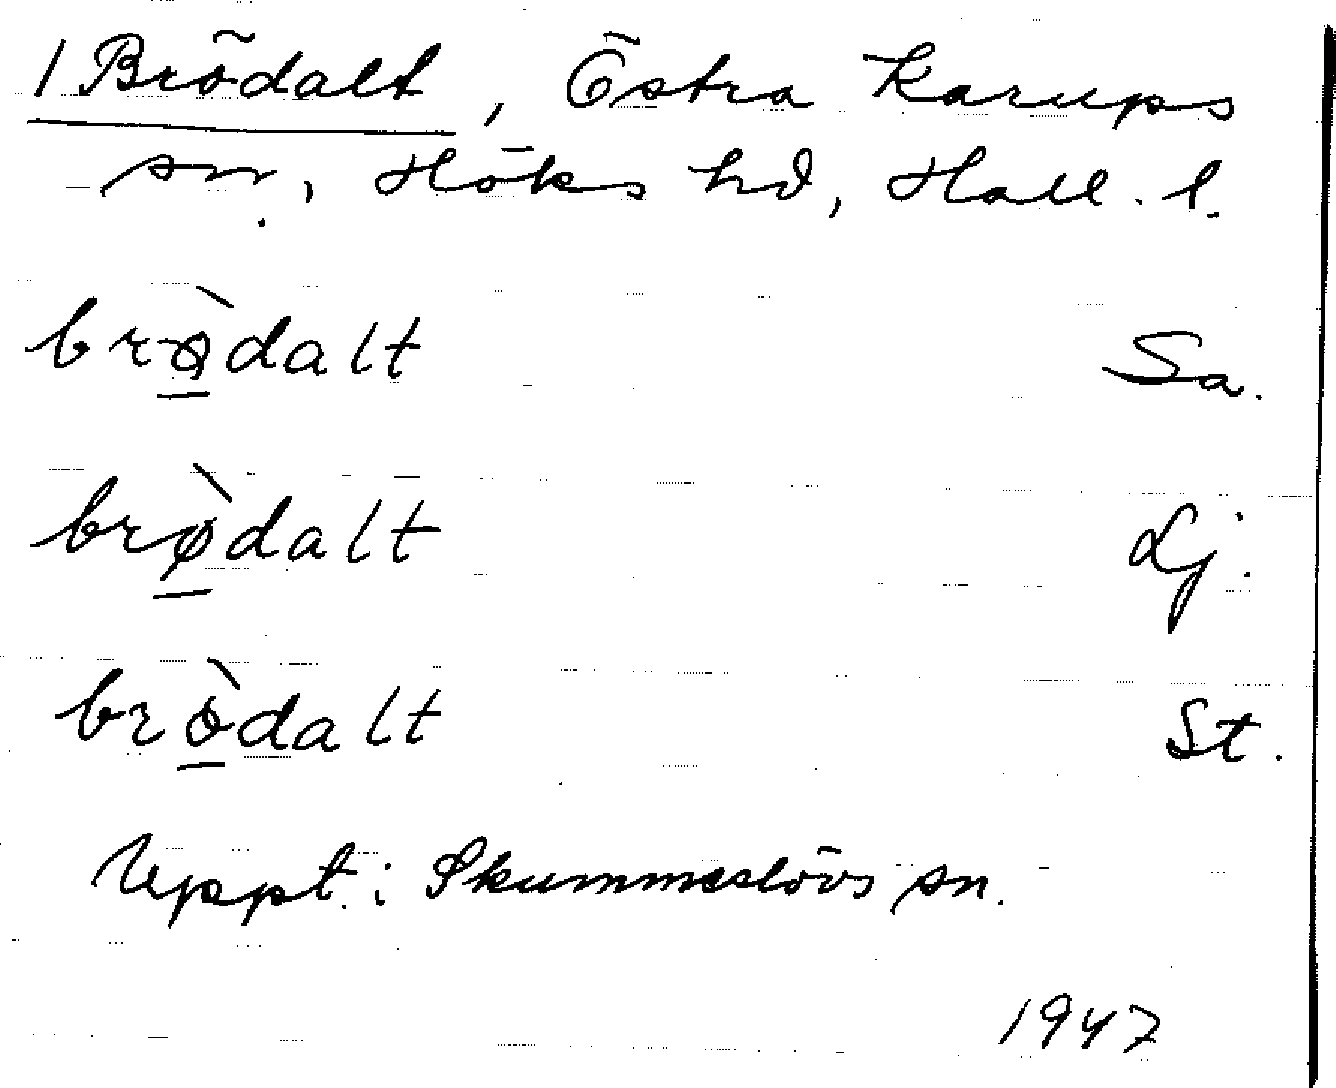 1 Brödalt, Östra Karups
sn., Höks hd, Hall. l.
brø̀dalt Sa.
brø̀dalt Lj.
brödalt St.
Uppt. i Skummeslövs sn.
1947